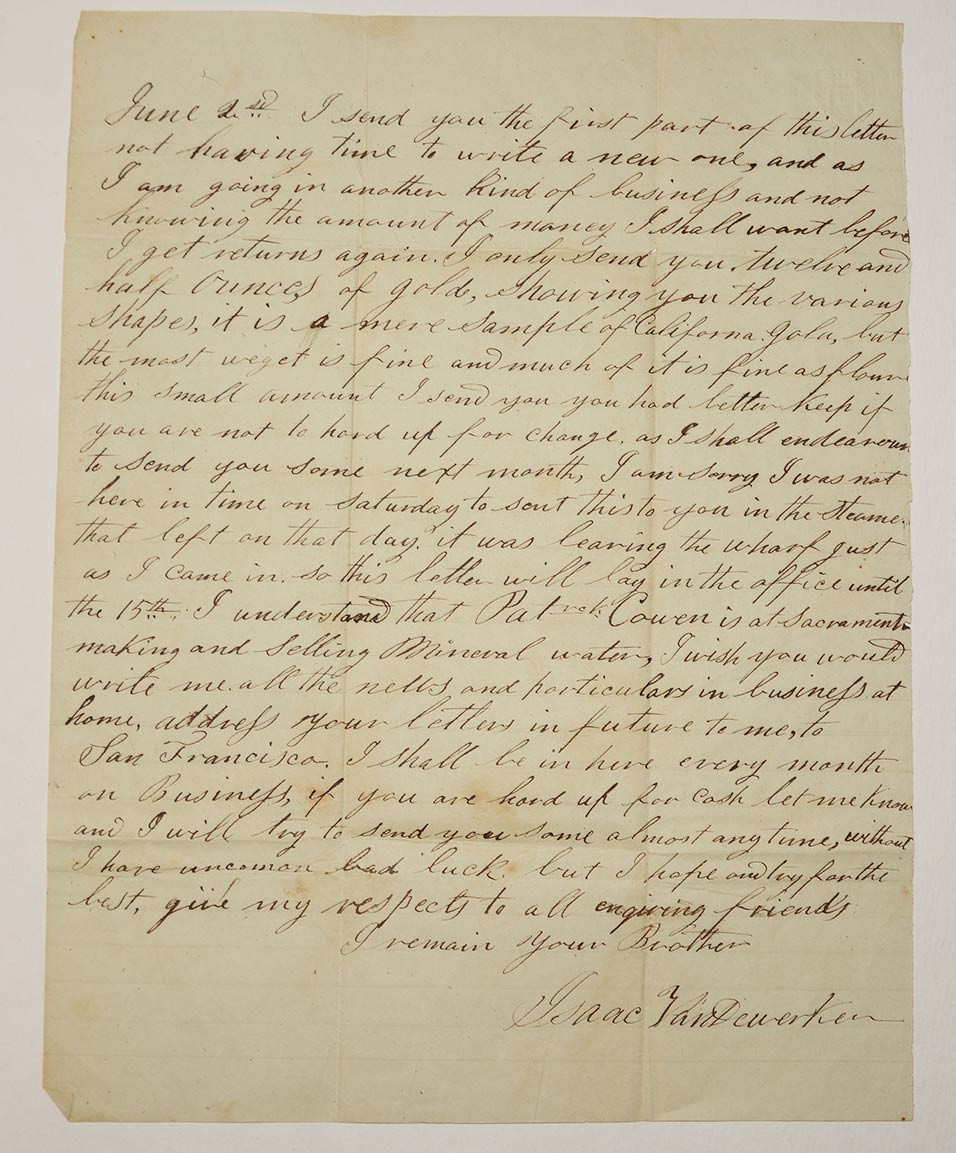 June 2nd. I send you the first part of this letter
not having time to write a new one, and as
I am going in another kind of business and not
knowing the amount of money I shall want before
I get returns again. I only send you twelve and
half ounces of gold, showing you the various
shapes, it is a mere sample of Californa gold, but
the most we get is fine and much of it is fine as flour
this small amount I send you you had better keep if
you are not to hard up for change, as I shall endeavour
to send you some next month, I am sorry I was not
here in time on Saturday to sent this to you in the steamer
that left on that day. it was leaving the wharf just
as I came in. so this letter will lay in the office until
the 15th. I understand that Patrck Cowen is at Sacramento
making and selling Mineral water, I wish you would
write me all the news and particulars in business at
home, address your letters in future to me, to
San Francisco. I shall be in here every month
on Business, if you are hard up for cash let me know
and I will try to send you some almost any time, without
I have uncomon bad luck. but I hope and try for the
best, give my respects to all enquiring friends
I remain your Brother
Isaac VanDewerken